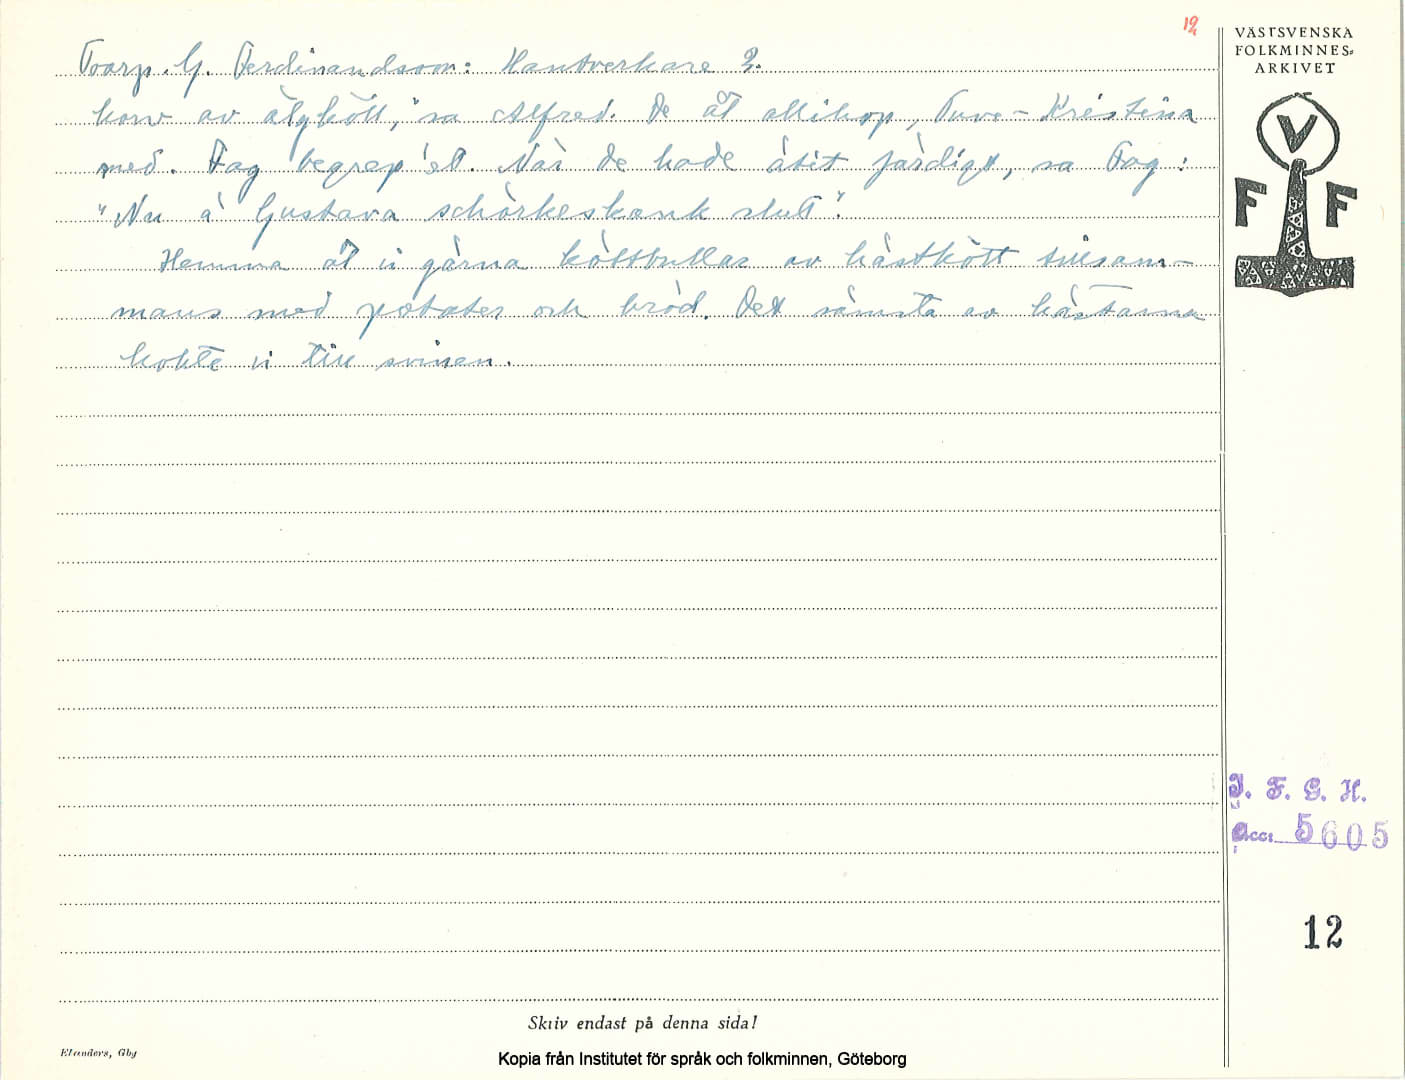 12
Toarp. G. Ferdinandsson: Hantverkare 2.
korv av älgkött, sa Alfred. De åt allihop, Tuve-Kristina
med. Fag begrep et. När de hade ätit färdigt, sa Fag:
"Nu ä Gustava schörkeskank slut".
Hemma åt vi gärna köttbullar av hästkött tillsam-
mans med potatis och bröd. Det sämsta av hästarna
kokte vi till svinen.
VÄSTSVENSKA
FOLKMINNES-
ARKIVET
V
F F
I. F. G. H.
Acc: 5605
12
Skriv endast på denna sida!
Elanders, Gbg
Kopia från Institutet för språk och folkminnen, Göteborg